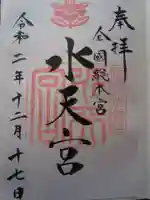 奉拝
全國総本宮
水天宮
令和二年十二月十七日